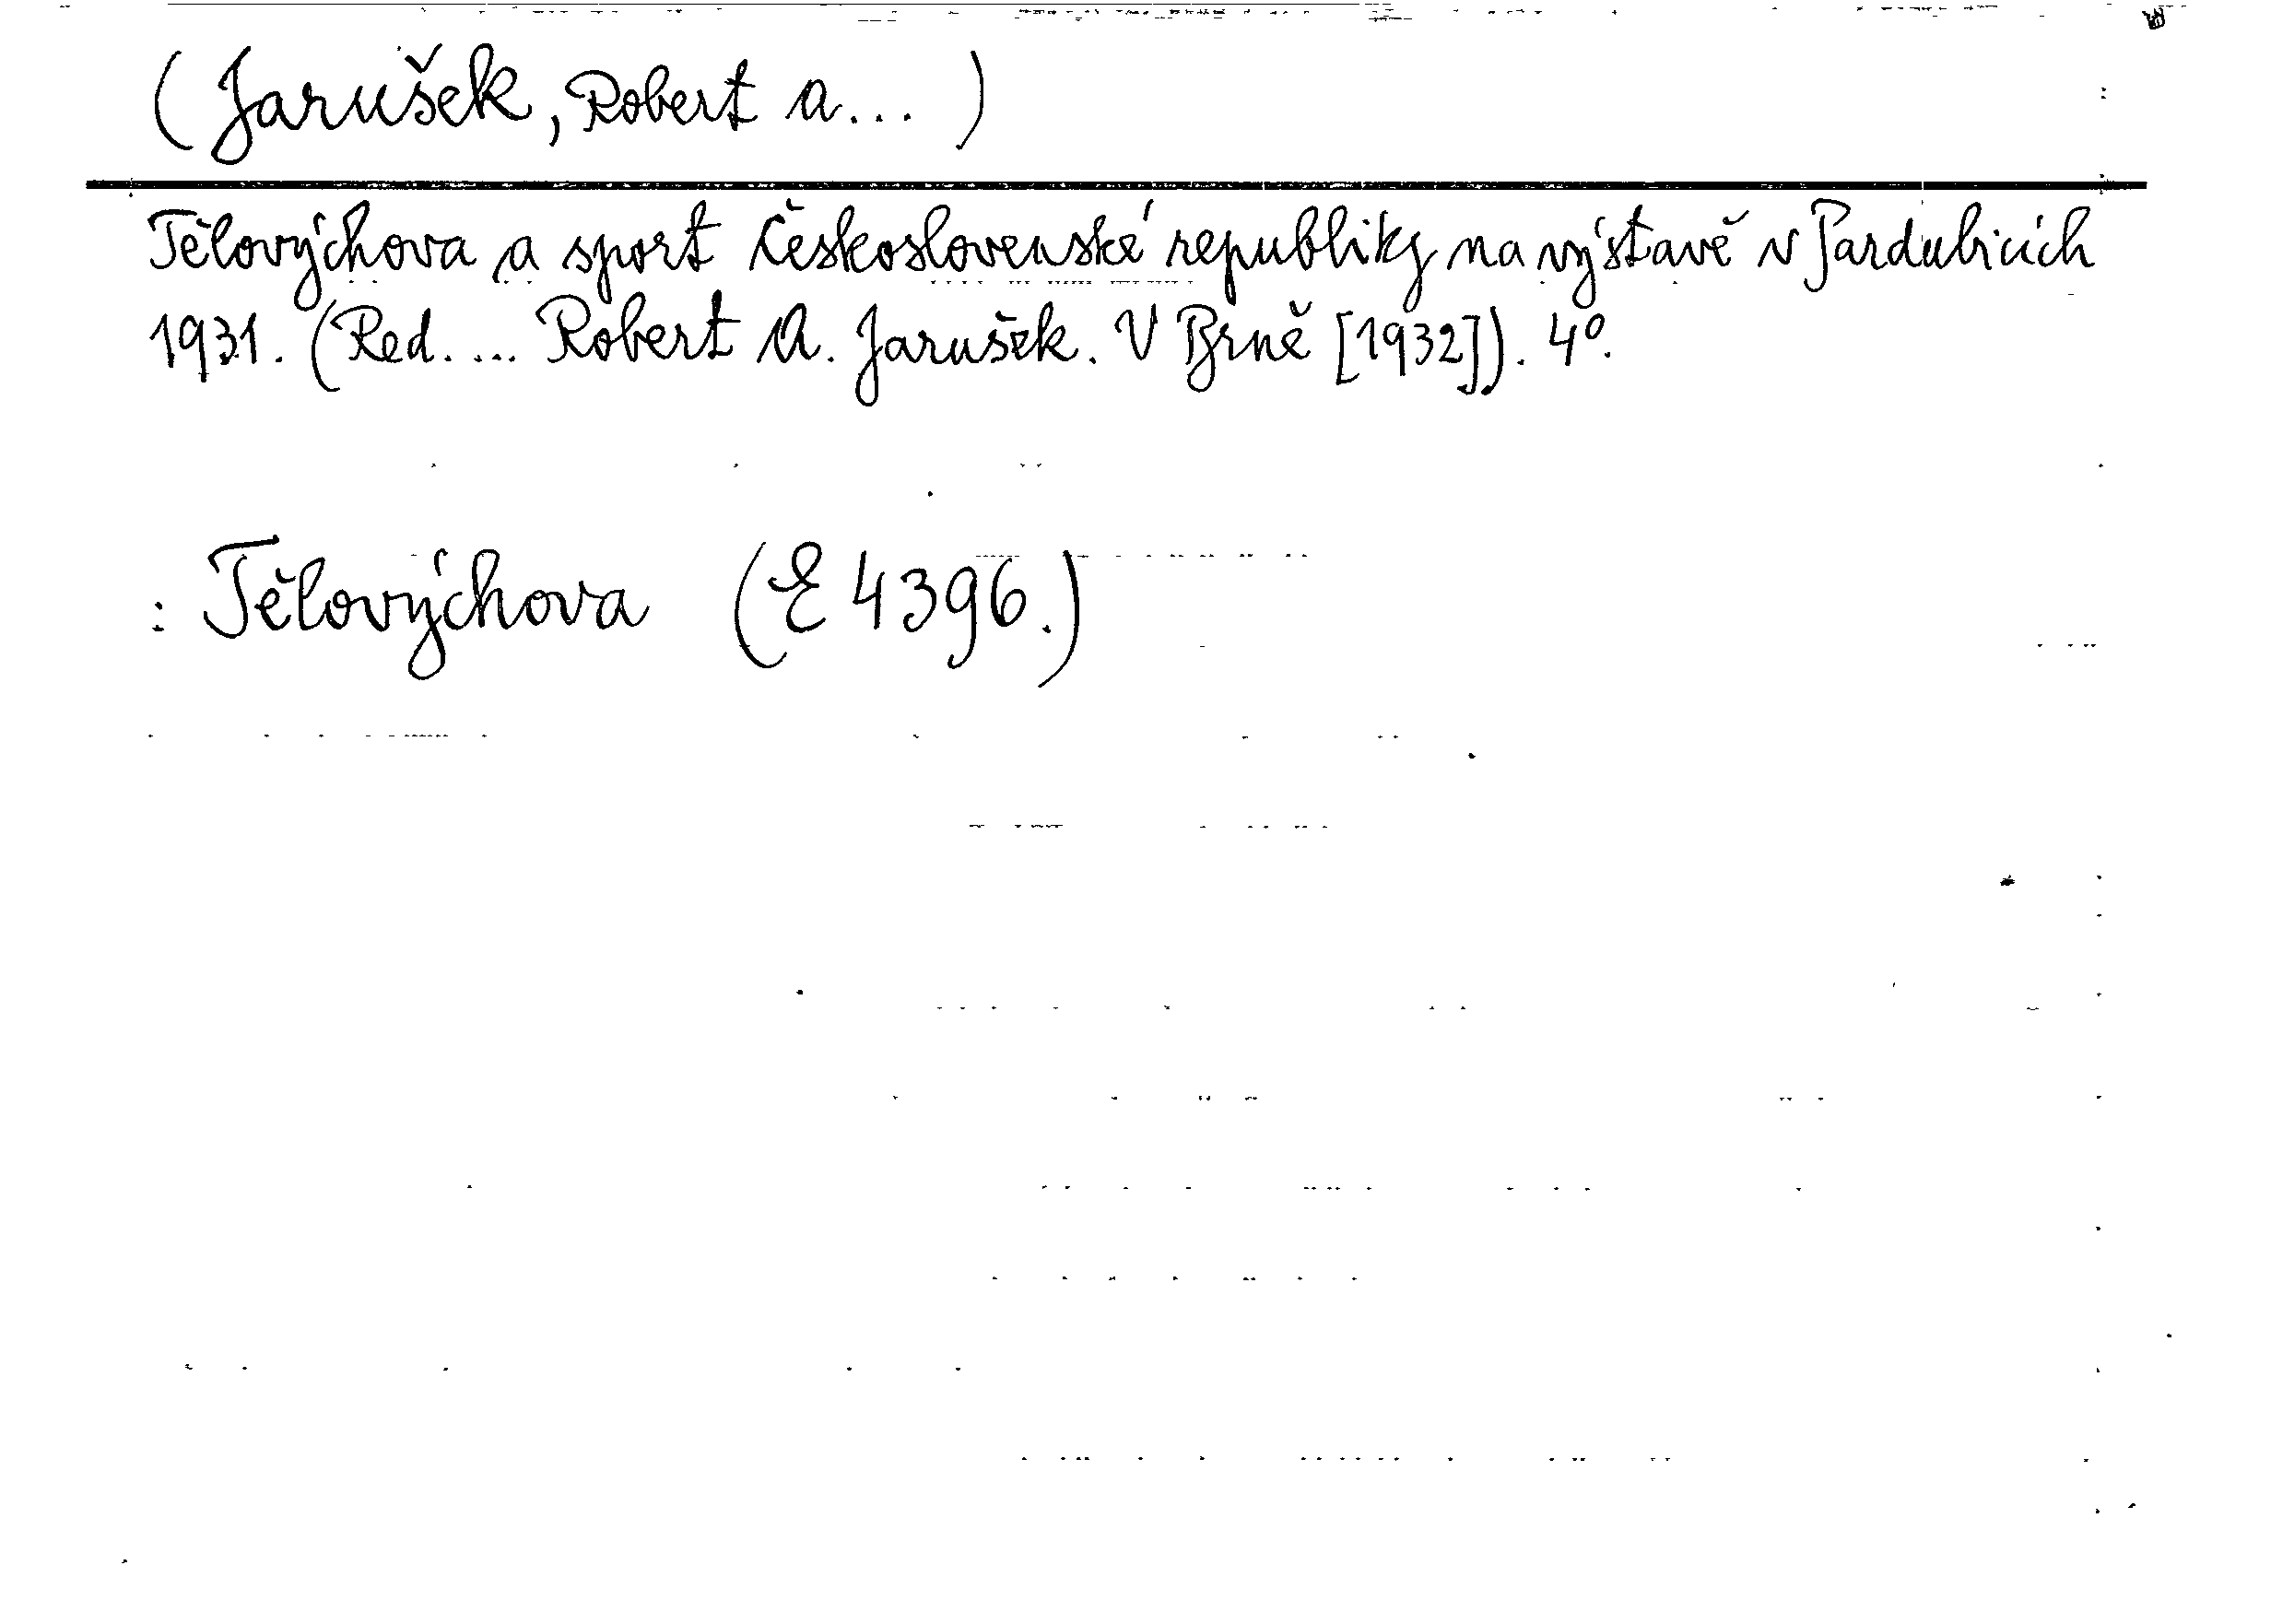 (Jarušek, Robert A... )
Tělovýchova a sport Československé republiky na výstavě v Pardubicích
1931. (Red. ... Robert A. Jarušek. V Brně [1932]). 4º.
: Tělovýchova (E 4396.)